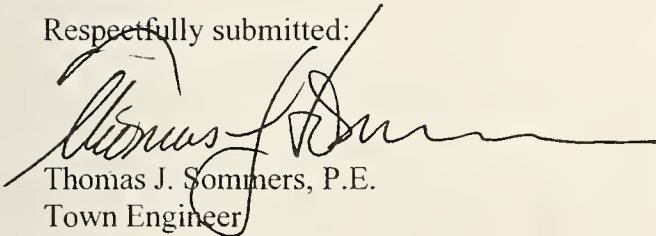 Respectfully submitted:
Thomas J Sommers
Thomas J. Sommers, P.E.
Town Engineer